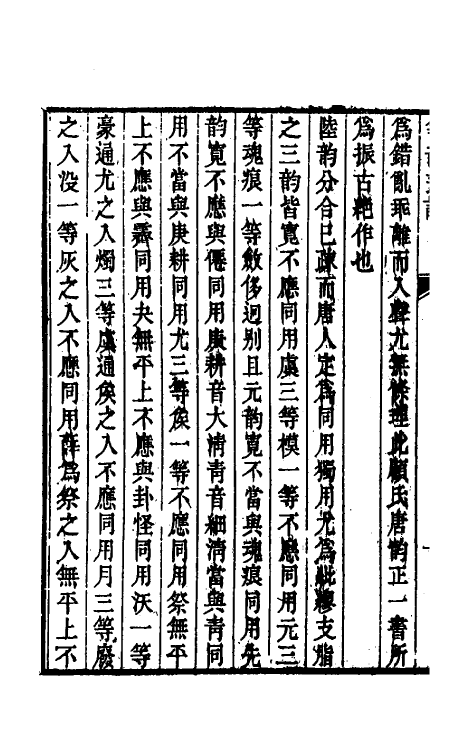 爲錯亂乖離而入聲尤無條理此顧氏唐韵正一書所
爲振古絶作也
陸韵分合已疎而唐人定爲同用獨用尤爲紕繆支脂
之三韵皆寛不應同用虞三等模一等不應同用元三
等魂痕一等斂侈迥别且元韵寛不當與魂痕同用先
韵寛不應與僊同用庚耕音大淸靑音細淸當與靑同
用不當與庚耕同用尤三等矦一等不應同用祭無平
上不應與霽同用夬無平上不應與卦怪同用沃一等
豪通尤之入燭三等虞通矦之入不應同用月三等廢
之入没一等灰之入不應同用薛爲祭之入無平上不